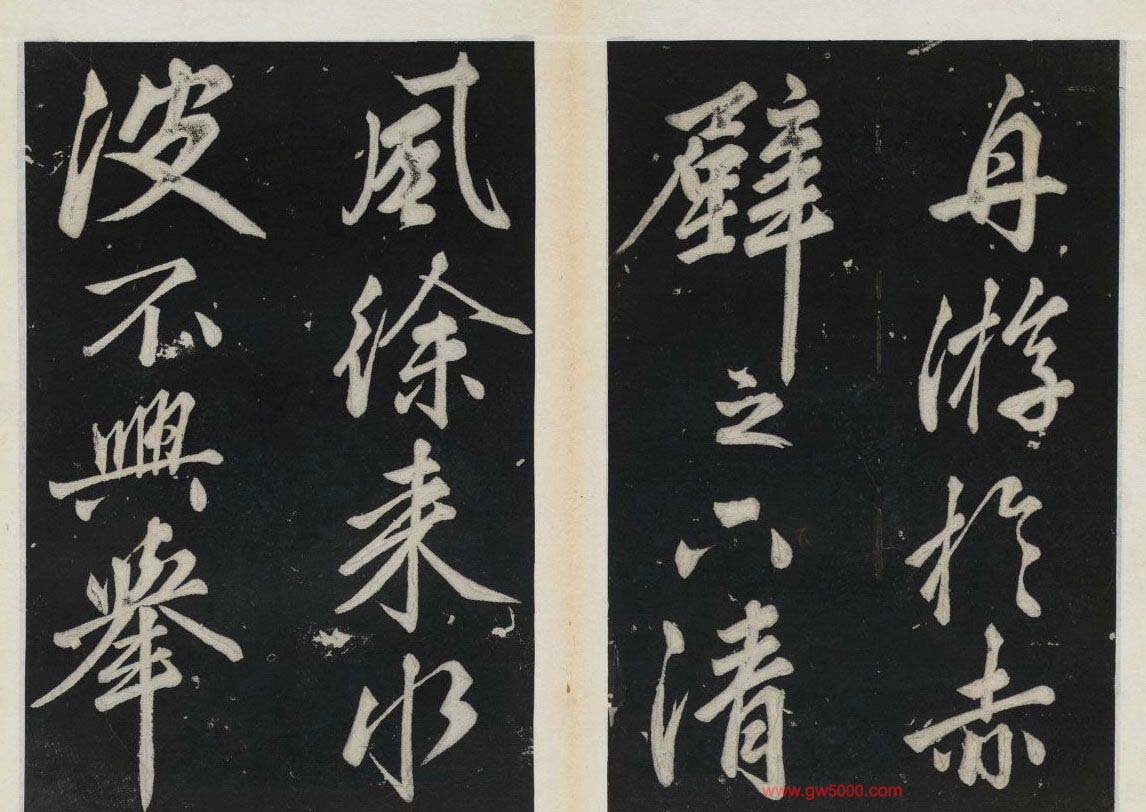 舟游於赤
壁之下清
風徐来水
波不興舉
www.gw5000.com